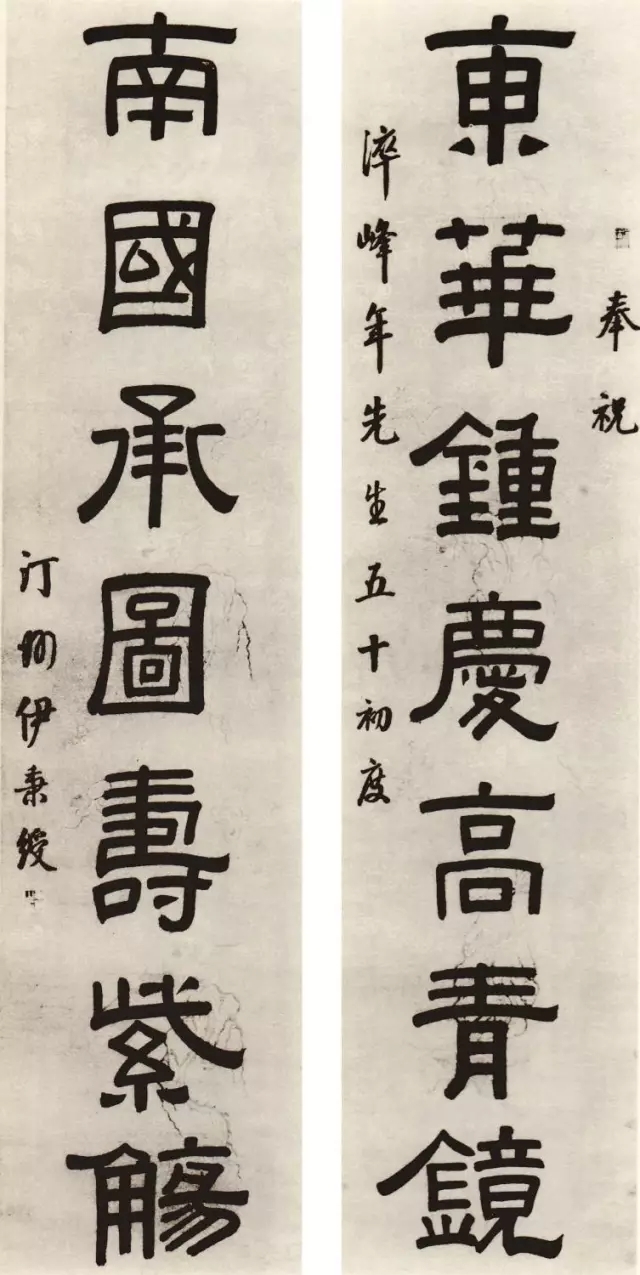 奉祝
東華鍾慶高青鏡
淬峰年先生五十初度
南國承圖壽紫觴
汀州伊秉綬